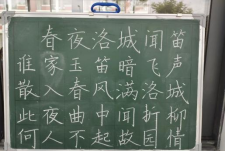 春夜洛城闻笛
谁家玉笛暗飞声
散入春风满洛城
此夜曲中闻折柳
何人不起故园情